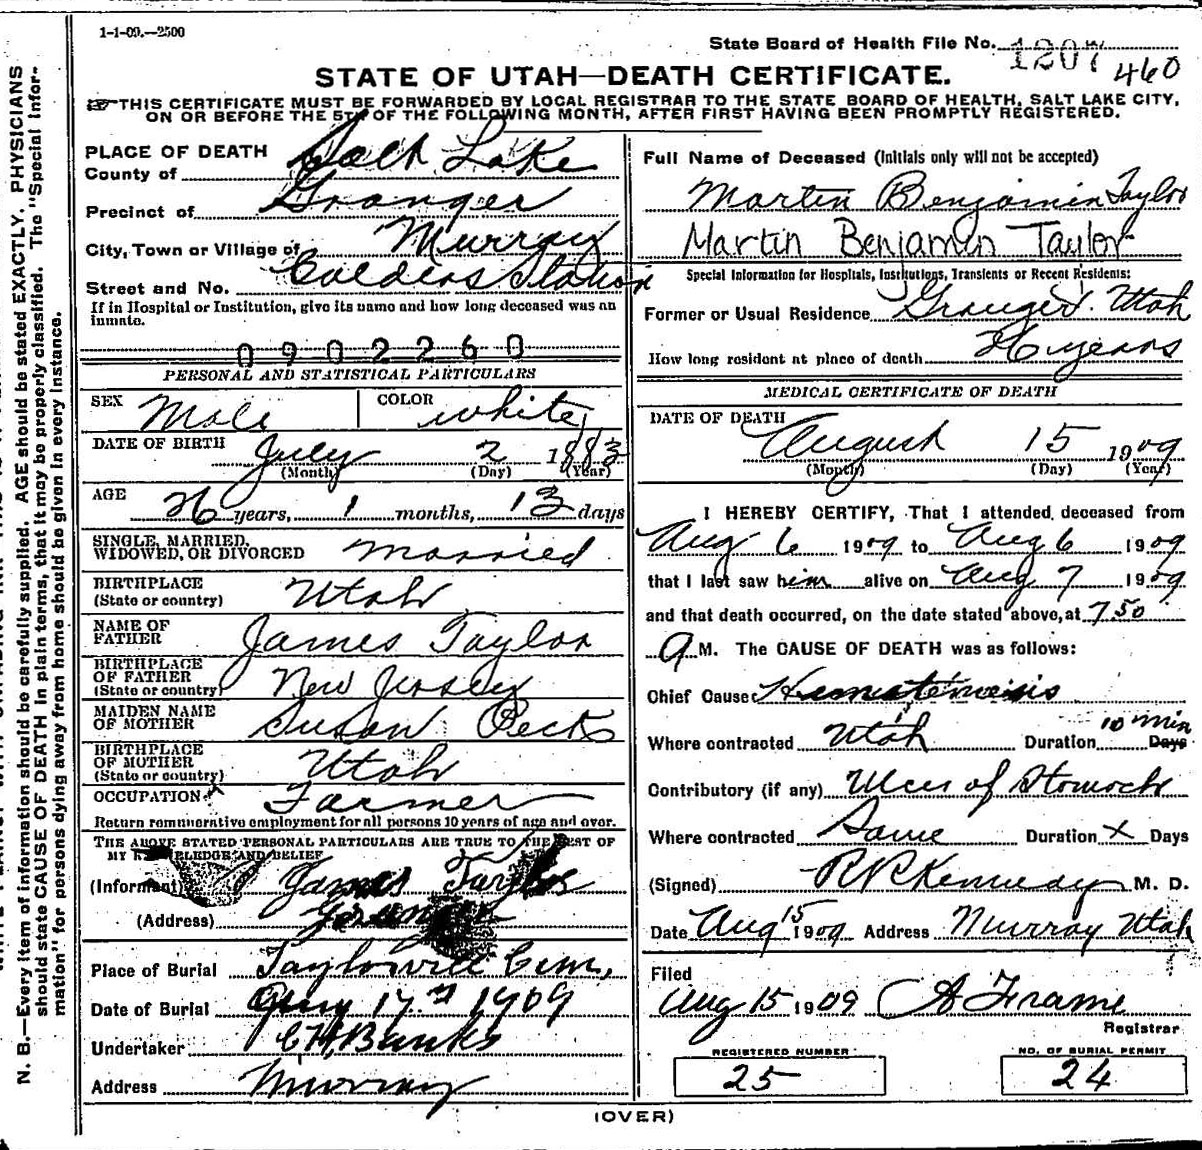 1-1-09.—2500
State Board of Health File No. 1207 460
STATE OF UTAH—DEATH CERTIFICATE.
THIS CERTIFICATE MUST BE FORWARDED BY LOCAL REGISTRAR TO THE STATE BOARD OF HEALTH, SALT LAKE CITY,
ON OR BEFORE THE 5TH OF THE FOLLOWING MONTH, AFTER FIRST HAVING BEEN PROMPTLY REGISTERED.
N. B.—Every item of information should be carefully supplied. AGE should be stated EXACTLY. PHYSICIANS
should state CAUSE OF DEATH in plain terms, that it may be properly classified. The "Special Infor-
mation" for persons dying away from home should be given in every instance.
PLACE OF DEATH
County of Salt Lake
Precinct of Granger
City, Town or Village of Murray
Street and No. Calders Station
If in Hospital or Institution, give its name and how long deceased was an
inmate.
0902260
PERSONAL AND STATISTICAL PARTICULARS
SEX Male COLOR white
DATE OF BIRTH July 2 1883
(Month) (Day) (Year)
AGE
26 years, 1 months, 13 days
SINGLE, MARRIED,
WIDOWED, OR DIVORCED married
BIRTHPLACE
(State or country) Utah
NAME OF
FATHER James Taylor
BIRTHPLACE
OF FATHER
(State or country) New Jersey
MAIDEN NAME
OF MOTHER Susan Beck
BIRTHPLACE
OF MOTHER
(State or country) Utah
OCCUPATION Farmer
Return remunerative employment for all persons 10 years of age and over.
THE ABOVE STATED PERSONAL PARTICULARS ARE TRUE TO THE BEST OF
MY KNOWLEDGE AND BELIEF
(Informant) James Taylor
(Address) Granger
Place of Burial Taylorsville Cem,
Date of Burial Aug 17th 1909
Undertaker Banks
Address Murray
Full Name of Deceased (Initials only will not be accepted)
Martin Benjamin Taylor
Martin Benjamin Taylor
Special Information for Hospitals, Institutions, Transients or Recent Residents:
Former or Usual Residence Granger. Utah
How long resident at place of death 26 years
MEDICAL CERTIFICATE OF DEATH
DATE OF DEATH
August 15 1909
(Month) (Day) (Year)
I HEREBY CERTIFY, That I attended deceased from
Aug 6 1909 to Aug 6 1909
that I last saw him alive on Aug 7 1909
and that death occurred, on the date stated above, at 7.50
a M. The CAUSE OF DEATH was as follows:
Chief Cause Hematemesis
Where contracted Utah Duration 10 min Days
Contributory (if any) Ulcer of Stomach
Where contracted Same Duration x Days
(Signed) Kennedy M. D.
Date Aug 15 1909 Address Murray Utah
Filed
Aug 15 1909 A Frame
Registrar
REGISTERED NUMBER
25
NO. OF BURIAL PERMIT
24
(OVER)